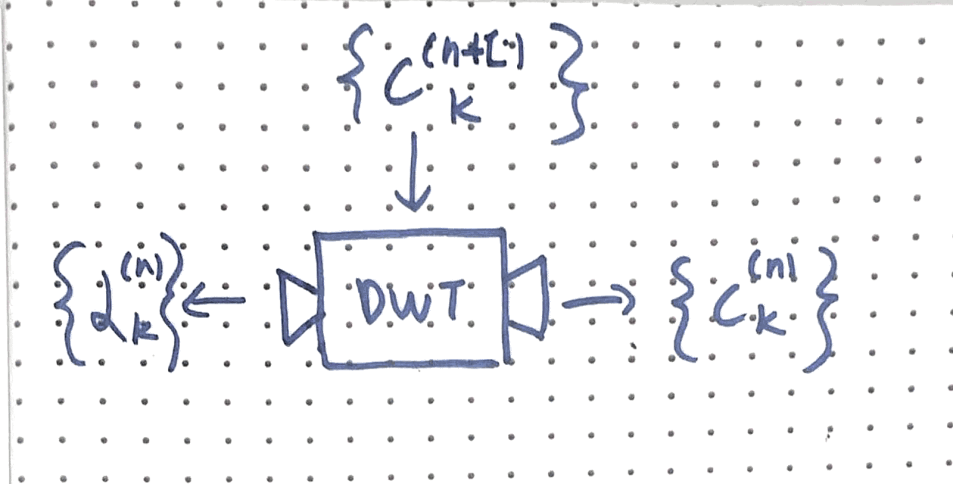 { C_k^(n+1) }
{ d_k^(n) } ← DWT → { C_k^(n) }